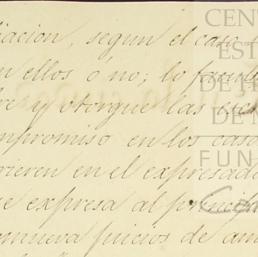 iacion, segun el caso
en ellos ó no; lo
re y otorgue las
ompromiso en los caso
rieren en el expresado
e expresa al
romueva juicios de
CEN
EST
DE
DE
FUN